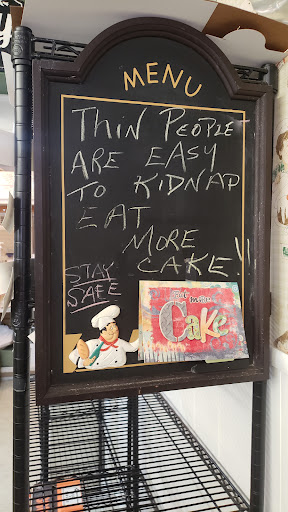 MENU
THIN PEOPLE
ARE EASY
TO KIDNAP
EAT
MORE
CAKE!!
STAY
SAFE
Cake